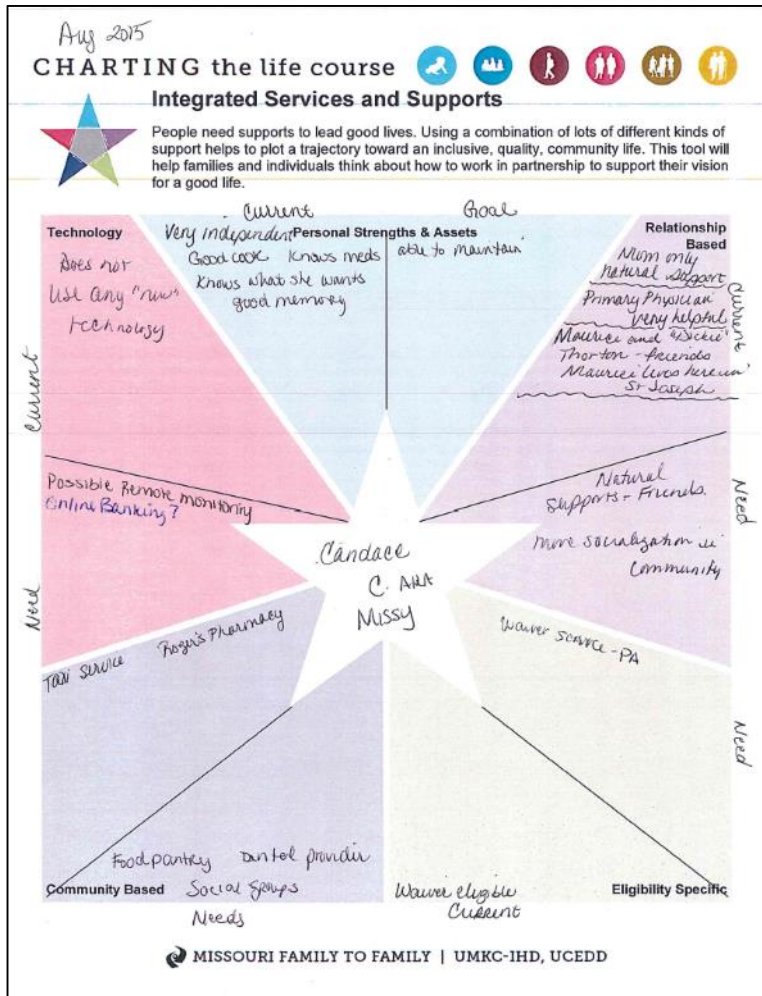 Aug 2015
CHARTING the life course
Integrated Services and Supports
People need supports to lead good lives. Using a combination of lots of different kinds of
support helps to plot a trajectory toward an inclusive, quality, community life. This tool will
help families and individuals think about how to work in partnership to support their vision
for a good life.
Current
Goal
Technology
Does not
use any "new"
technology
Current
Possible Remote monitoring
Online Banking?
Need
Personal Strengths & Assets
Very independent
Good cook Knows meds
Knows what she wants
good memory
able to maintain
Relationship
Based
Mom only
natural support
Primary Physician
very helpful
Maurice and "Dickie"
Thorton - friends
Maurice lives here in
St Joseph
Current
Natural
Supports - Friends.
more socialization in
Community
Need
Candace
C. AKA
Missy
Taxi service Roger's Pharmacy
Food pantry Dental provider
Community Based Social Groups
Needs
Waiver service - PA
Need
Waiver eligible
Current
Eligibility Specific
MISSOURI FAMILY TO FAMILY | UMKC-IHD, UCEDD